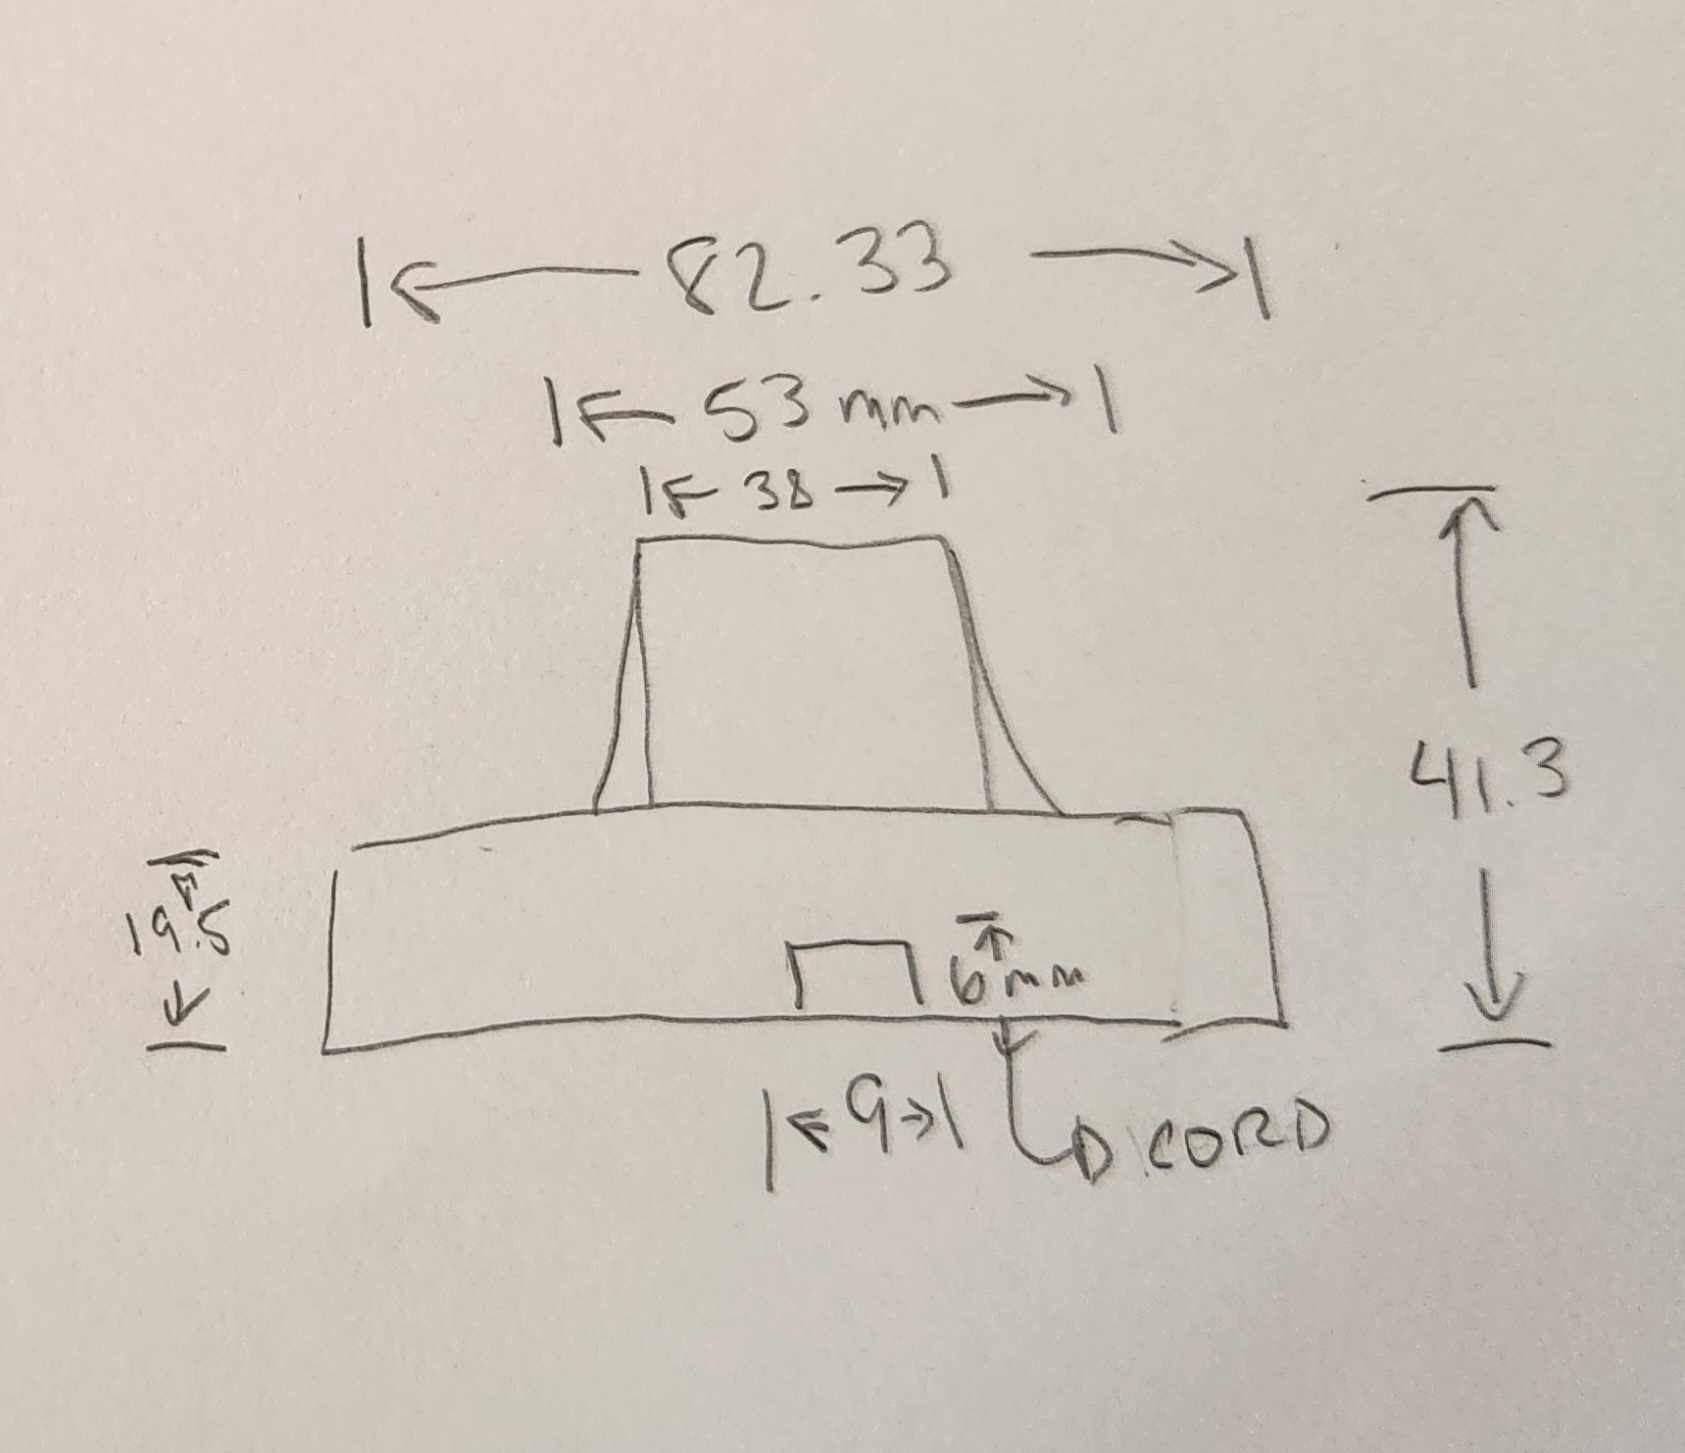 82.33
53 mm
38
41.3
19.5
6 mm
9
CORD